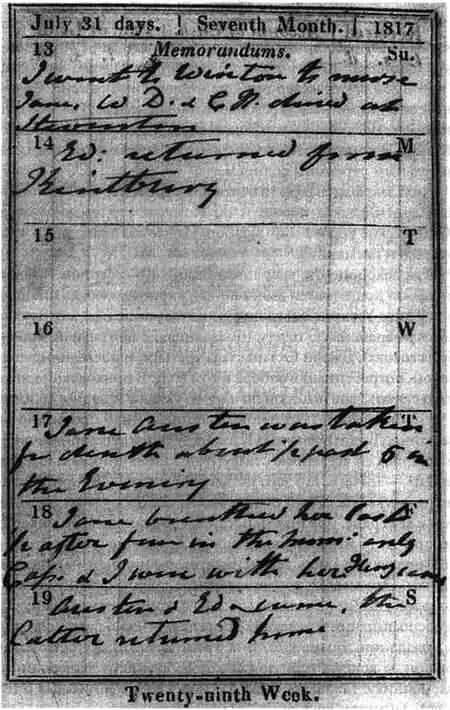 July 31 days. Seventh Month. 1817
13 Memorandums. Su.
I went to Winton to nurse
Jane. W D. & C. W. dined at
Steventon
14 Ed: returned from M
Kintbury
15 T
16 W
17 Jane Austen was taken T
for death about ½ past 5 in
the Evening
18 Jane breathed her last F
½ after four in the Morn: only
Cass. & I were with her Henry came
19 Austen & Ed came, the S
latter returned home
Twenty-ninth Week.